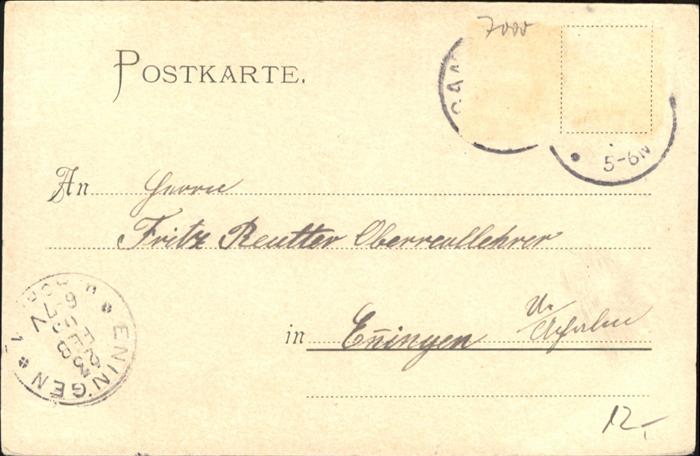 7000
POSTKARTE.
5-6N
An Herrn
Fritz Reutter Oberreallehrer
in Eningen u. Achalm
ENINGEN
23 FEB
12,-